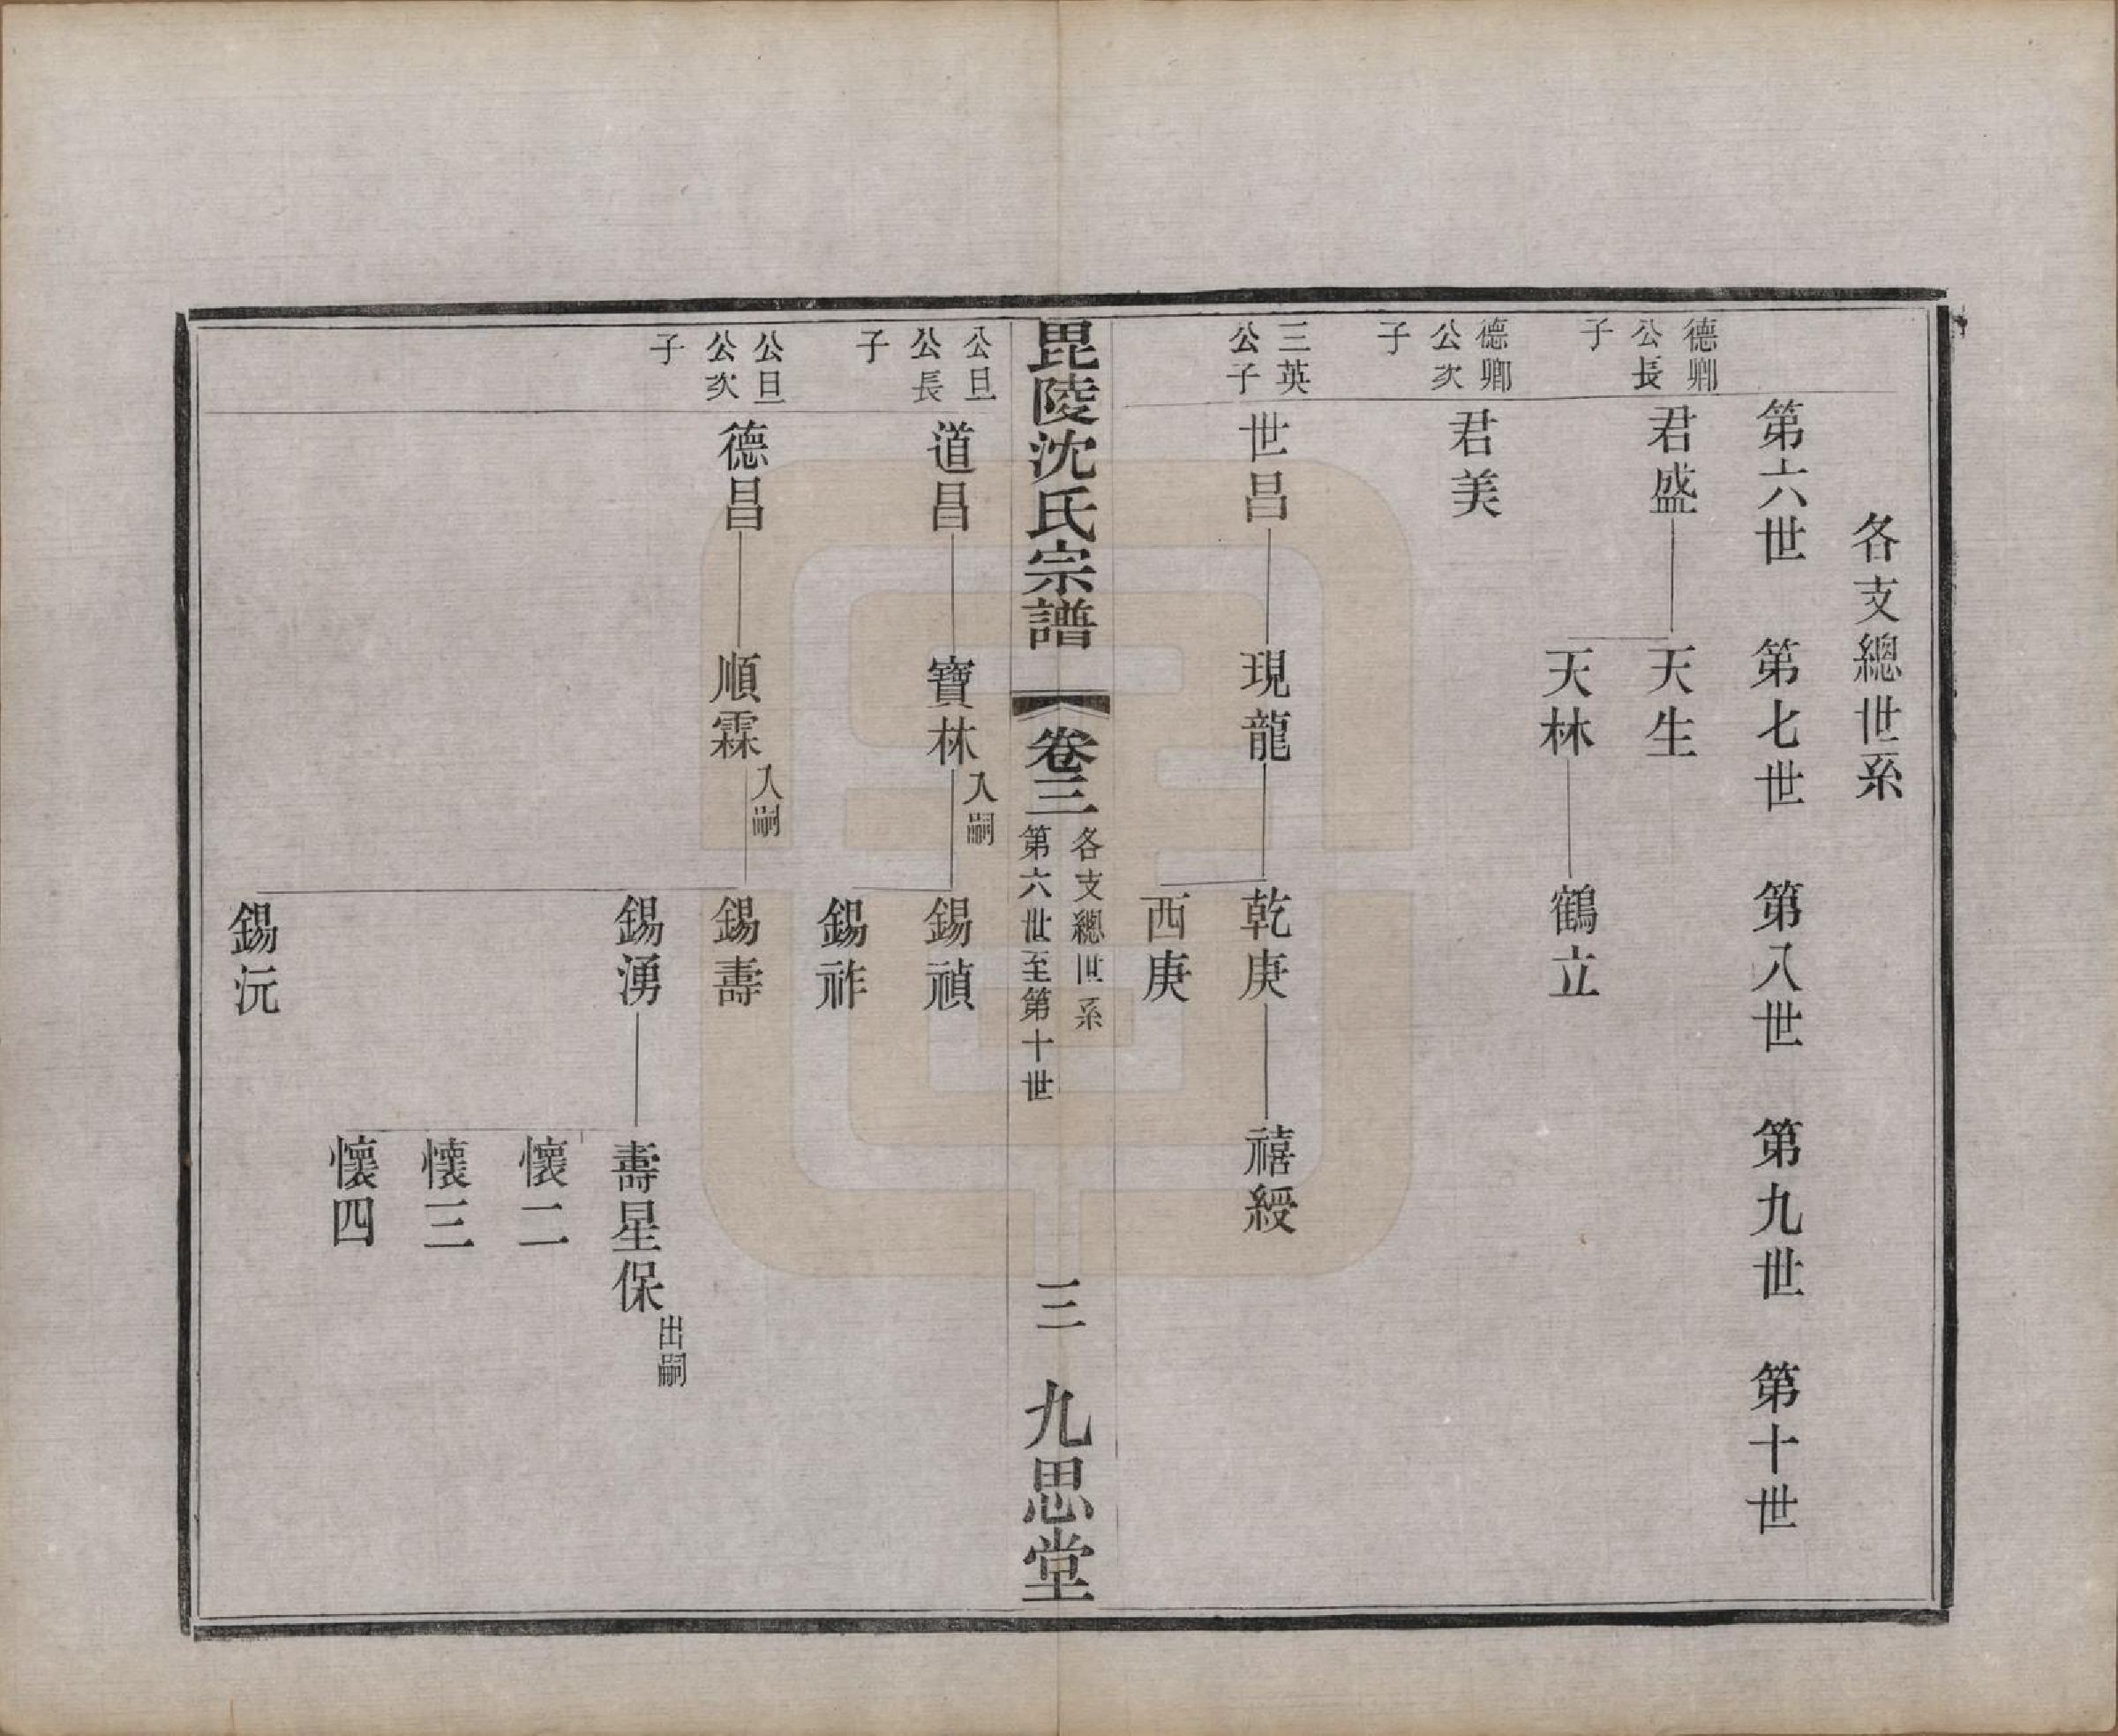 各支總世系
第六世　第七世　第八世　第九世　第十世
德卿
公長
子
君盛　天生
天林　鶴立
德卿
公次
子
君美
三英
公子
世昌　現龍　乾庚　禧綬
西庚
毘陵沈氏宗譜　卷三　各支總世系
第六世至第十世
三　九思堂
公旦
公長
子
道昌　寶林入嗣　錫禎
錫祚
公旦
公次
子
德昌　順霖入嗣　錫壽
錫湧　壽星保出嗣
懷二
懷三
懷四
錫沅